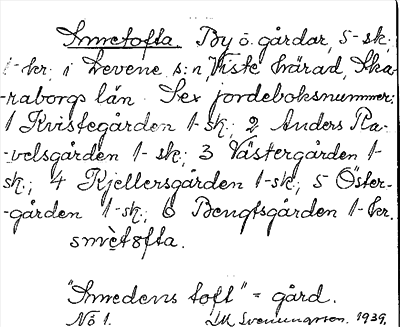 Smetofta. By o. gårdar, 5-sk.
1-kr. i Levene s:n, Viste härad, Ska-
-raborgs län. Sex jordeboksnummer:
1 Kvistegården 1-sk.; 2 Anders Pa-
-velsgården 1-sk.; 3 Västergården 1-
sk.; 4 Kjellersgården 1-sk.; 5 Öster-
-gården 1-sk.; 6 Bengtsgården 1-kr.
smètofta.
"Smedens toft" = gård.
No 1. Svenungsson. 1939.